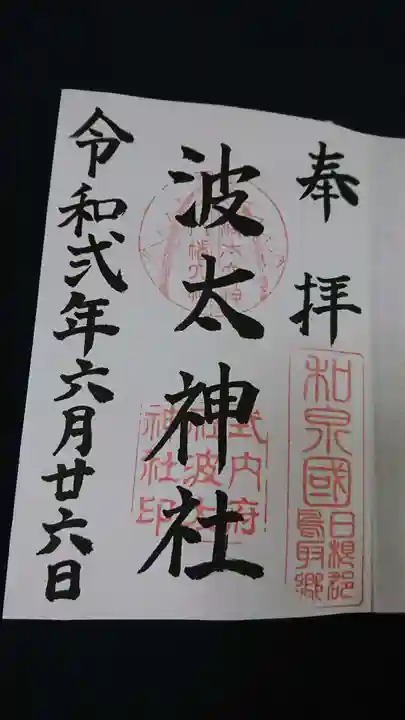 奉拝
和泉國
日根郡
鳥取郷
波太神社
式内府
社波太
神社印
令和弐年六月廿六日